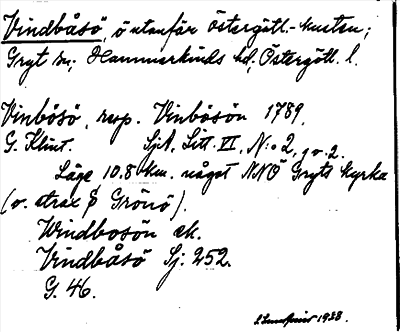 Vindbåsö, ö utanför Östergötl.-kusten;
Gryt sn; Hammarkinds hd, Östergötl. l.
Vinbösö, resp. Vinbösön 1789.
G. Klint. Sjk. Litt. VI, N:o 2, go. 2.
Läge 10.8 km. något NNÖ Gryts kyrka
(o. strax Ö Grönö).
Windbosön ek.
Vindbåsö Sj: 252.
G. 46.
1938.